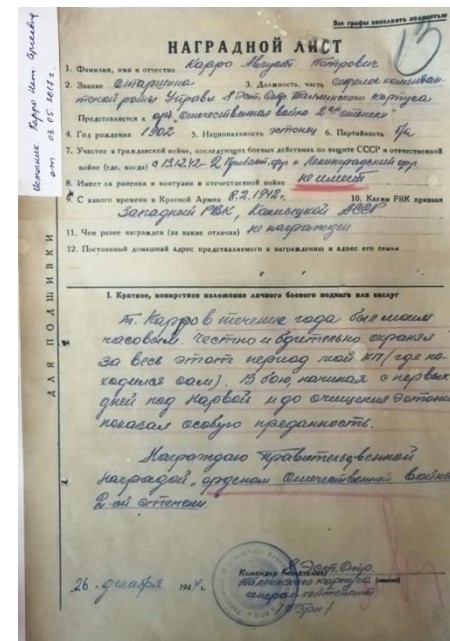 Все графы заполнять полностью
13
НАГРАДНОЙ ЛИСТ
1. Фамилия, имя и отчество Карро Август Петрович
2. Звание Старшина 3. Должность, часть стрелок комендан-
тской роты Управл. 8 Эст. Стр. Таллинского корпуса
Представляется к орд. Отечественная война 2ой степени
4. Год рождения 1902 5. Национальность эстонец 6. Партийность б/п
7. Участие в гражданской войне, последующих боевых действиях по защите СССР и отечественной
войне (где, когда) с 1942 - 2 Прибалт. фр. и Ленинградский фр.
8. Имеет ли ранения и контузии в отечественной войне не имеет
9. С какого времени в Красной Армии 8.2.1942. 10. Каким РВК призван
Западный РВК, Калмыцкой АССР
11. Чем ранее награжден (за какие отличия) не награжден
12. Постоянный домашний адрес представляемого к награждению и адрес его семьи
I. Краткое, конкретное изложение личного боевого подвига или заслуг
т. Карро в течение года был моим
часовым. Честно и бдительно охранял
за весь этот период мой КП (где на-
ходился сам). В бою, начиная с первых
дней под Нарвой и до очищения Эстонии
показал особую преданность.
Награждаю правительственной
наградой, орденом Отечественной войны
2-ой степени
Командир 8 Эст. Стр.
Таллинского корпуса
генерал-лейтенант
26 декабря 1944 г.
ДЛЯ ПОДШИВКИ
Источник Карро
от 03.05.2017 г.